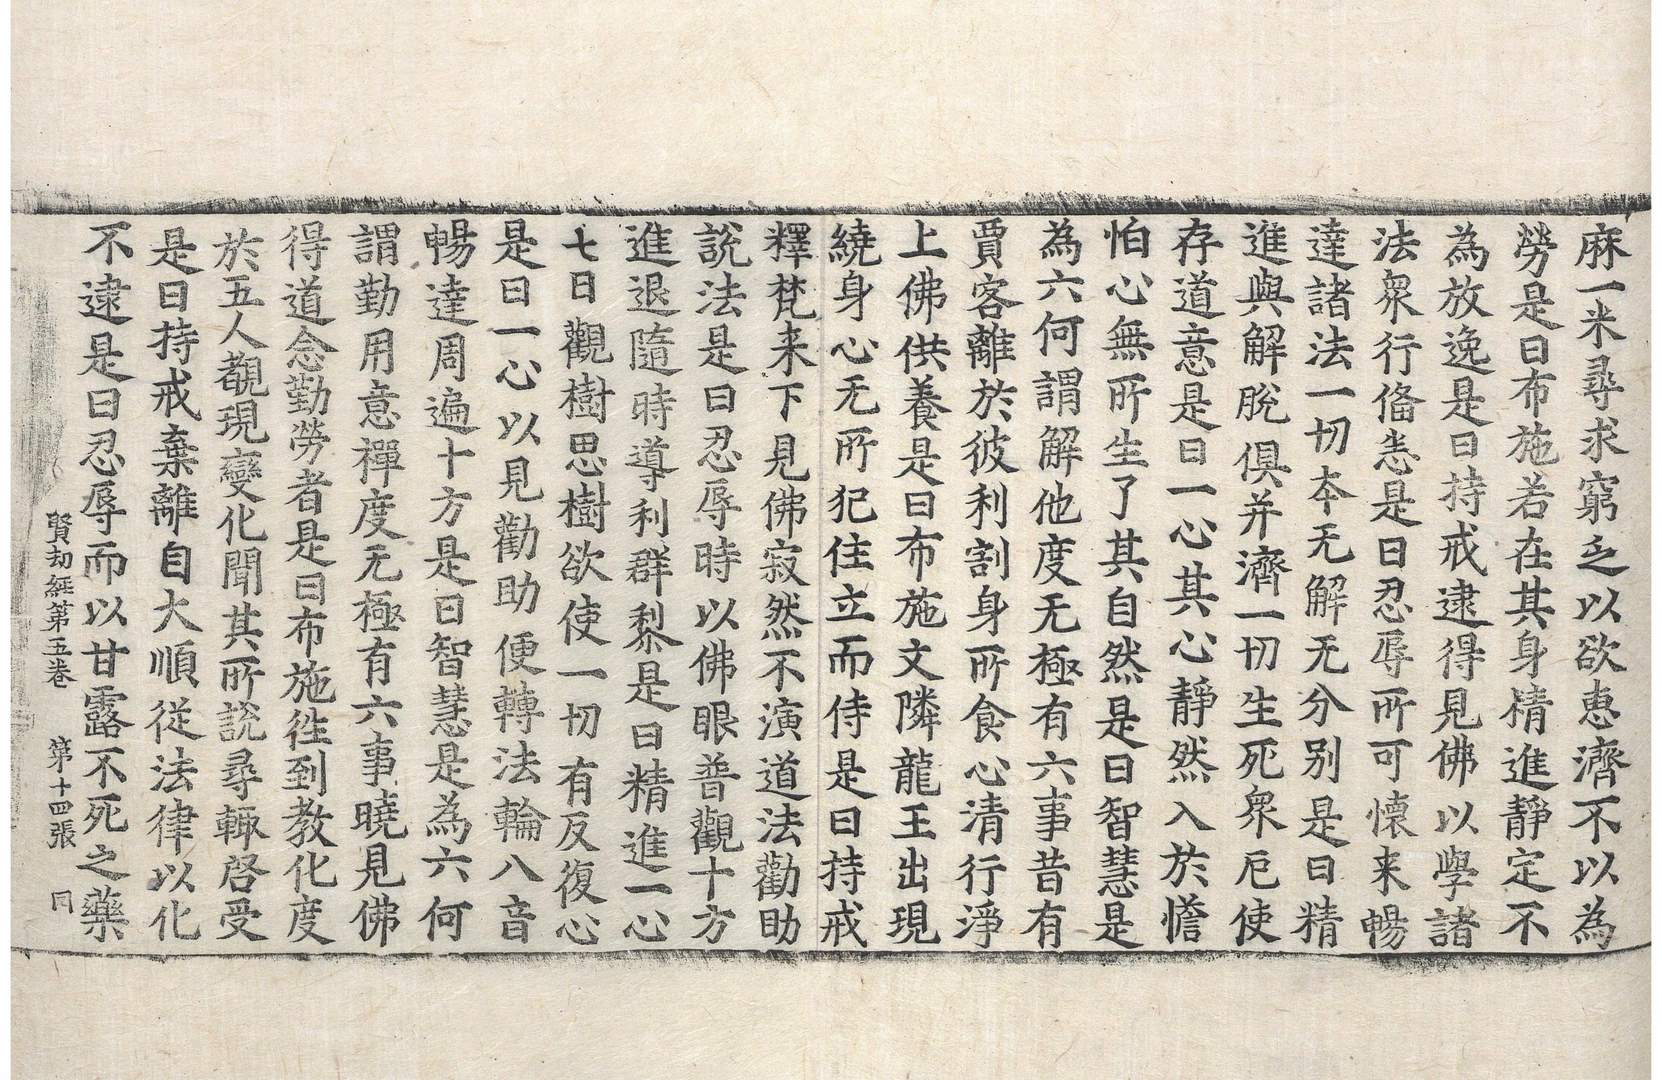 麻一米尋求窮乏以欲恵濟不以為
勞是曰布施若在其身精進靜定不
為放逸是曰持戒逮得見佛以學諸
法衆行俻恚是曰忍辱所可懷来暢
達諸法一切夲无解无分别是曰精
進與解脫俱并濟一切生死衆厄使
存道意是曰一心其心靜然入於憺
怕心無所生了其自然是曰智慧是
為六何謂解他度无極有六事昔有
賈客離於彼利割身所食心清行淨
上佛供養是曰布施文隣龍王出現
繞身心无所犯住立而侍是曰持戒
釋梵来下見佛寂然不演道法勸助
說法是曰忍辱時以佛眼普觀十方
進退隨時導利群黎是曰精進一心
七日觀樹思樹欲使一切有反復心
是曰一心以見勸助便轉法輪八音
暢達周遍十方是曰智慧是為六何
謂勤用意禪度无極有六事曉見佛
得道念勤勞者是曰布施徃到教化度
於五人覩現變化聞其所説尋輙啓受
是曰持戒棄離自大順從法律以化
不逮是曰忍辱而以甘露不死之藥
賢劫經第五卷 第十四張 同